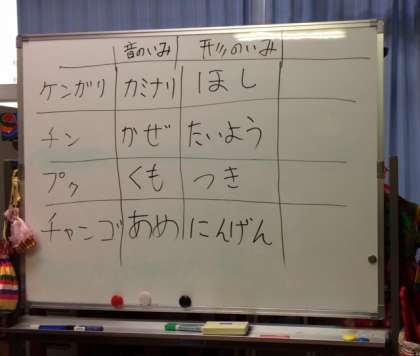 音のいみ 形のいみ
ケンガリ カミナリ ほし
チン かぜ たいよう
プク くも つき
チャンゴ あめ にんげん